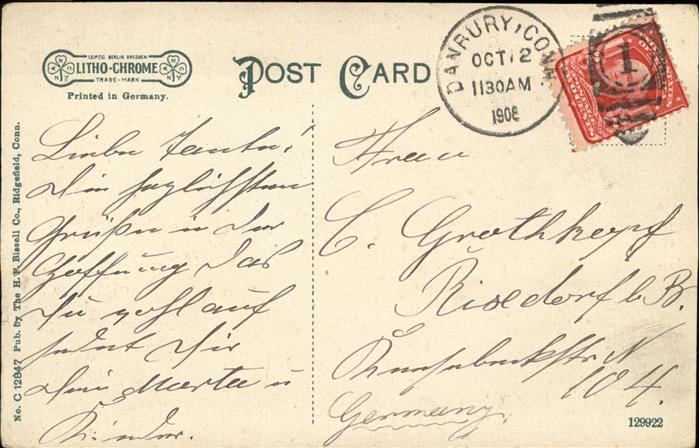 LEIPZIG BERLIN DRESDEN
LITHO-CHROME
TRADE-MARK
N Y
N Y
Printed in Germany.
POST CARD
DANBURY, CONN.
OCT 12
11 30 AM
1908
1
No. C 12847 Pub. by The H. P. Bissell Co., Ridgefield, Conn.
Liebe Tante!
Die herzlichsten
Grüßen u der
Hoffnung das
du wohl auf
sendet Dir
Deine Marta u
Kinder.
Frau
C. Grothkopf
Rixdorf b. B.
N
104.
Germany.
129922